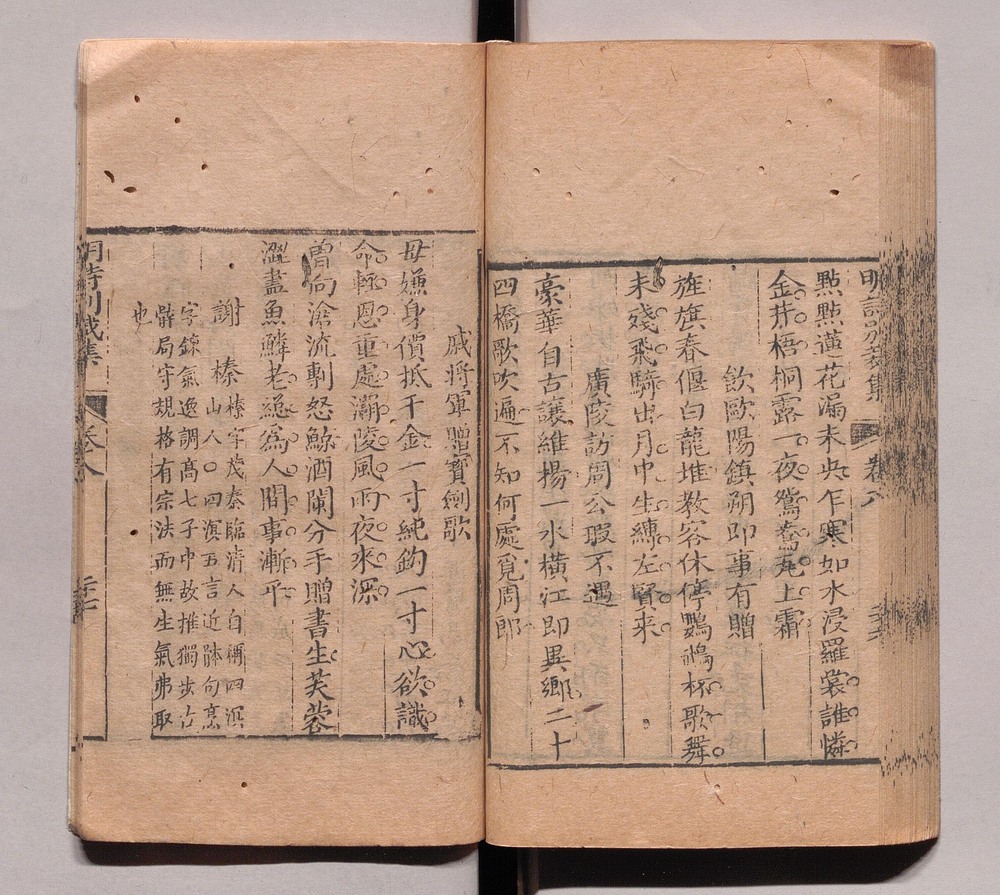 明詩別裁集 卷八
點點蓮花漏未央乍寒如水浸羅裳誰憐
金井梧桐露一夜鴛鴦瓦上霜
飲歐陽鎮朔即事有贈
旌旗春偃白龍堆教客休停鸚鵡杯歌舞
未殘飛騎出月中生縛左賢来
廣陵訪周公瑕不遇
豪華自古讓維楊一水橫江即異鄉二十
四橋歌吹遍不知何處覓周郎
戚將軍贈寶劍歌
毋嫌身價抵千金一寸純鈎一寸心欲識
命輕恩重處灞陵風雨夜來深
曾向滄流剸怒鯨酒闌分手贈書生芙蓉
澀盡魚鱗老總為人間事漸平
謝榛 榛字茂秦臨清人自稱四溟
山人○四溟五言近體句烹
字鍊氣逸調高七子中故推獨步古
體局守規格有宗法而無生氣弗取
也
明詩別裁集 卷八